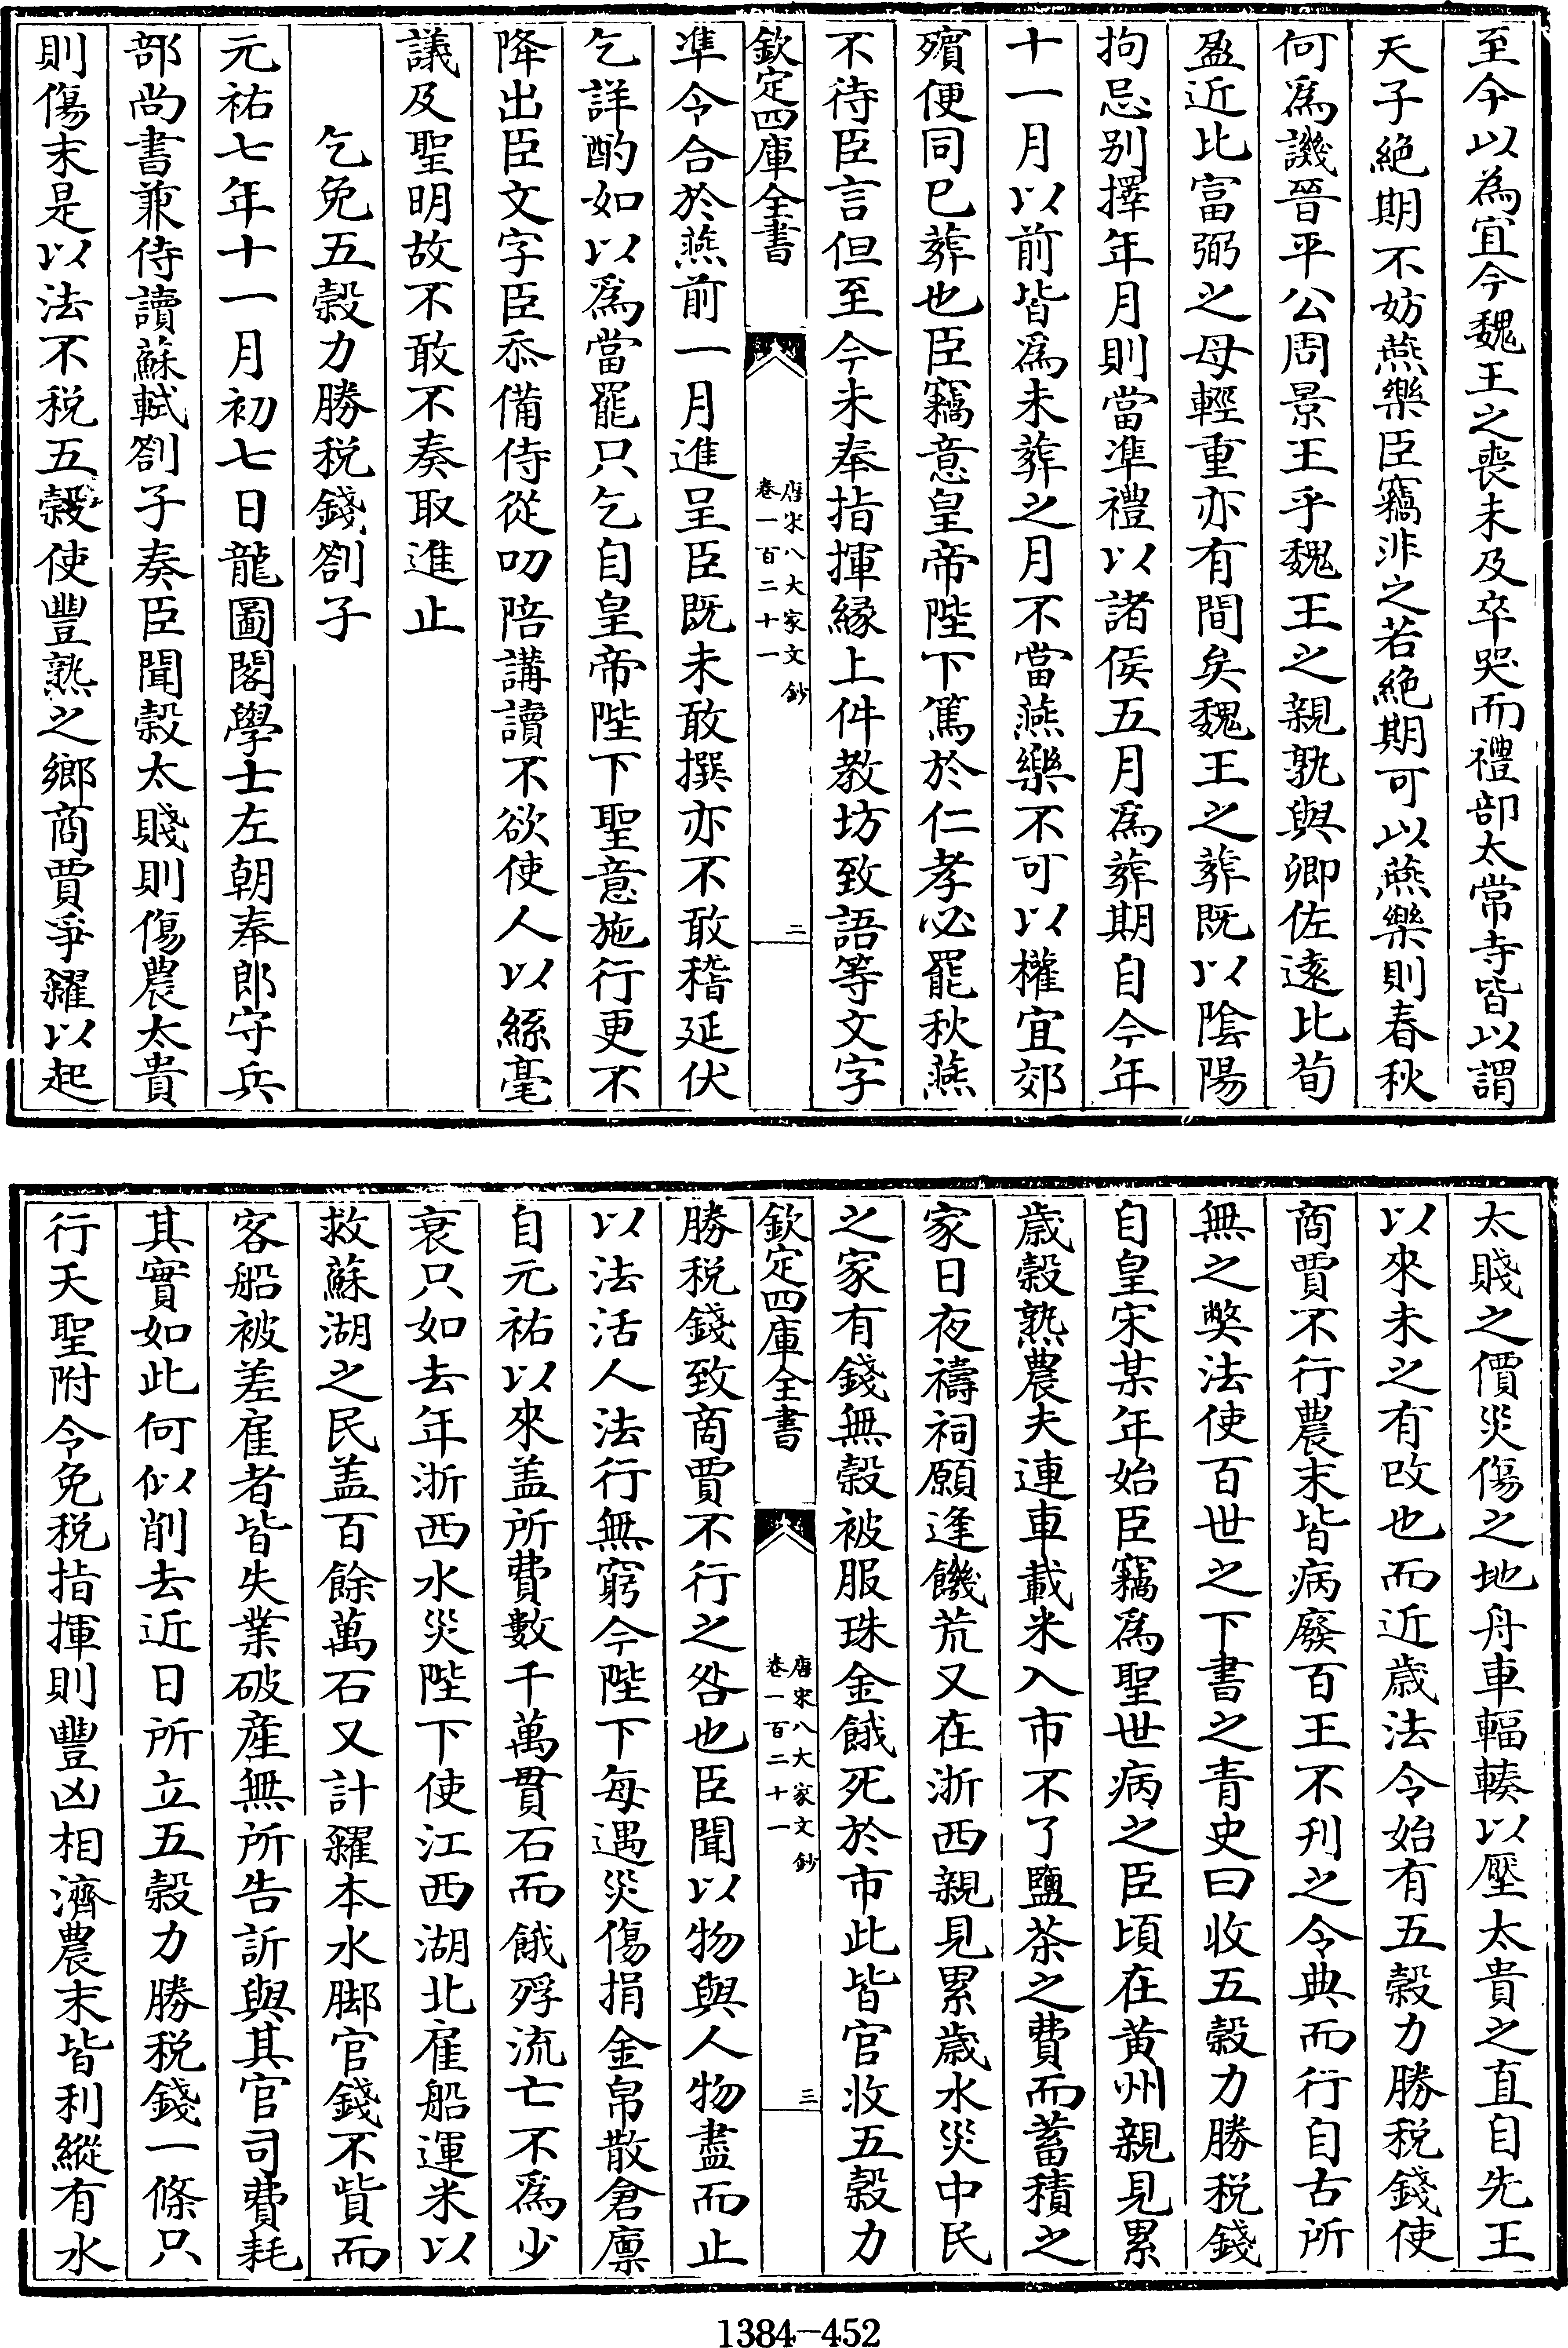 至今以為宜今魏王之喪未及卒哭而禮部太常寺皆以謂
天子絶期不妨燕樂臣竊非之若絶期可以燕樂則春秋
何爲譏晉平公周景王乎魏王之親孰與卿佐逺比荀
盈近比富弼之母輕重亦有間矣魏王之葬既以陰陽
拘忌别擇年月則當凖禮以諸侯五月爲葬期自今年
十一月以前皆爲未葬之月不當燕樂不可以權宜郊
殯便同已葬也臣竊意皇帝陛下篤於仁孝必罷秋燕
不待臣言但至今未奉指揮縁上件教坊致語等文字
欽定四庫全書
唐宋八大家文鈔
卷一百二十一
二
凖令合於燕前一月進呈臣既未敢撰亦不敢稽延伏
乞詳酌如以爲當罷只乞自皇帝陛下聖意施行更不
降出臣文字臣忝備侍從叨陪講讀不欲使人以絲毫
議及聖明故不敢不奏取進止
乞免五榖力勝税錢劄子
元祐七年十一月初七日龍圖閣學士左朝奉郎守兵
部尚書兼侍讀蘇軾劄子奏臣聞榖太賤則傷農太貴
則傷末是以法不税五榖使豐熟之鄉商賈爭糴以起
太賤之價災傷之地舟車輻輳以壓太貴之直自先王
以來未之有改也而近歳法令始有五榖力勝税錢使
商賈不行農末皆病廢百王不刋之令典而行自古所
無之獘法使百世之下書之青史曰收五榖力勝税錢
自皇宋某年始臣竊爲聖世病之臣頃在黄州親見累
歳榖熟農夫連車載米入市不了鹽茶之費而蓄積之
家日夜禱祠願逢饑荒又在浙西親見累歳水災中民
之家有錢無榖被服珠金餓死於市此皆官收五榖力
欽定四庫全書
唐宋八大家文鈔
卷一百二十一
三
勝税錢致商賈不行之咎也臣聞以物與人物盡而止
以法活人法行無窮今陛下每遇災傷捐金帛散倉廪
自元祐以來盖所費數千萬貫石而餓殍流亡不爲少
衰只如去年浙西水災陛下使江西湖北雇船運米以
救蘇湖之民盖百餘萬石又計糴本水脚官錢不貲而
客船被差雇者皆失業破産無所告訴與其官司費耗
其實如此何似削去近日所立五榖力勝税錢一條只
行天聖附令免税指揮則豐凶相濟農末皆利縱有水
1384-452